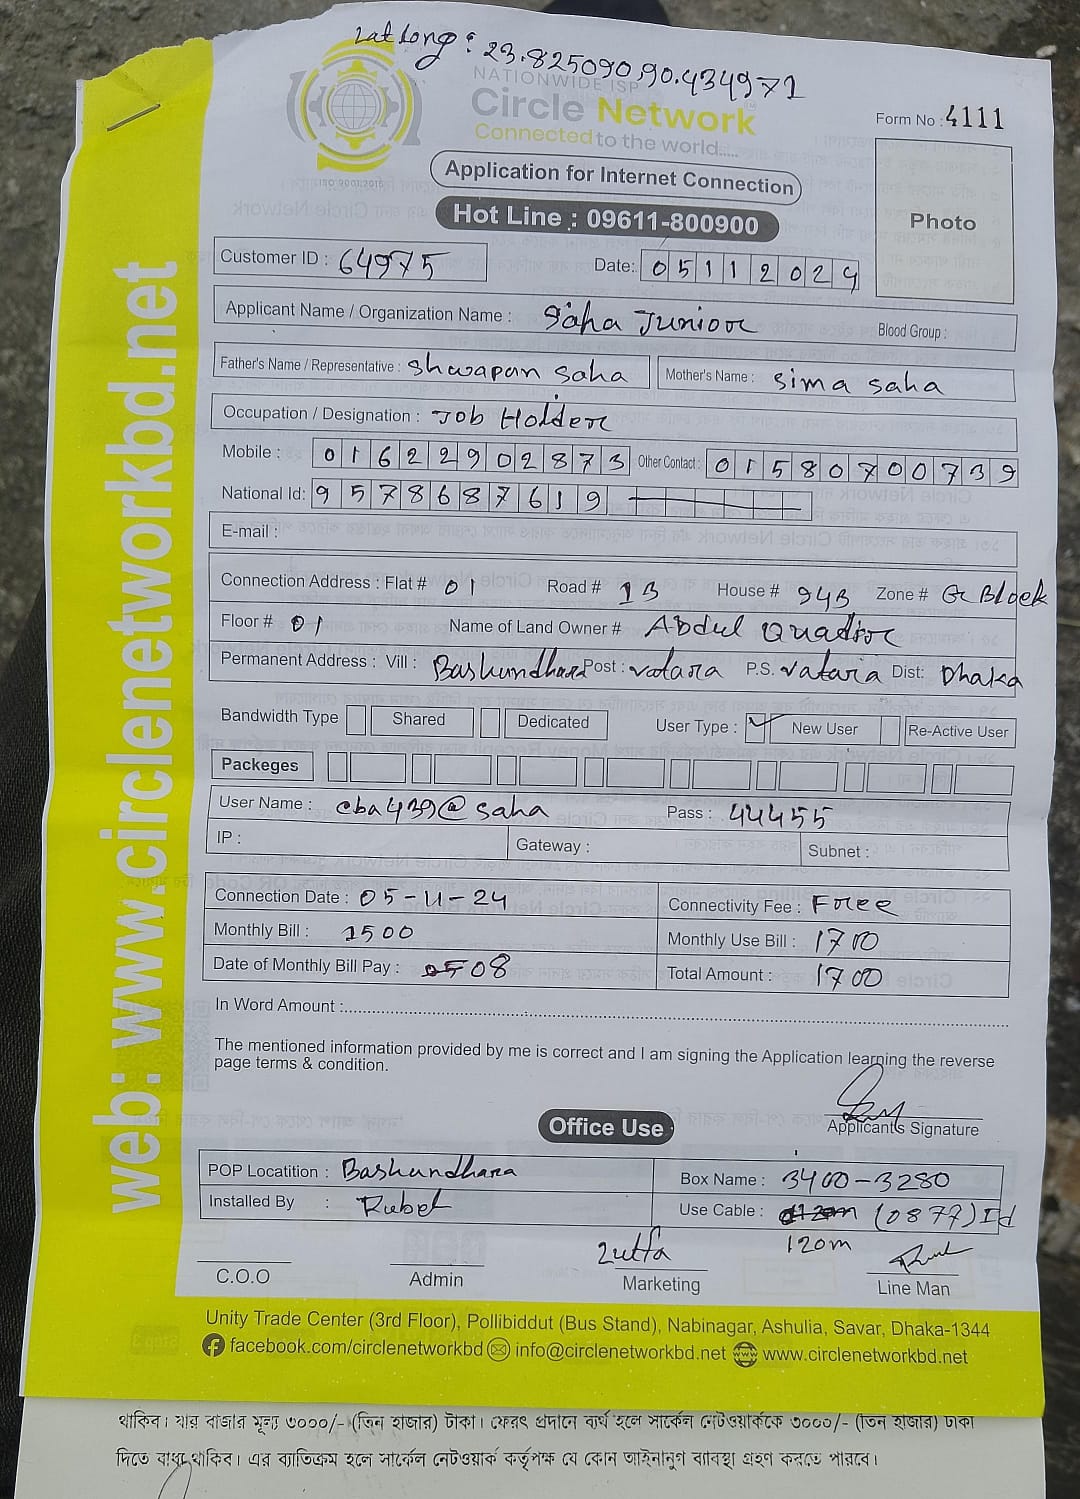 Lat Long : 23.825090,90.434971
NATIONWIDE ISP
Circle Network
Connected to the world.....
ISO 9001:2015
Form No : 4111
Application for Internet Connection
Hot Line : 09611-800900
Photo
web: www.circlenetworkbd.net
Customer ID : 64975 Date: 05112024
Applicant Name / Organization Name : Saha Junior Blood Group :
Father's Name / Representative : Shwapan Saha Mother's Name : Sima Saha
Occupation / Designation : Job Holder
Mobile : 01622902873 Other Contact : 01580700739
National Id: 9578687619
E-mail :
Connection Address : Flat # 01 Road # 13 House # 943 Zone # G Block
Floor # 01 Name of Land Owner # Abdul Quadir
Permanent Address : Vill : Bashundhara Post : Vatara P.S. Vatara Dist: Dhaka
Bandwidth Type Shared Dedicated User Type : New User Re-Active User
Packeges
User Name : cba439@saha Pass : 44455
IP : Gateway : Subnet :
Connection Date : 05-11-24 Connectivity Fee : Free
Monthly Bill : 1500 Monthly Use Bill : 1700
Date of Monthly Bill Pay : 08 Total Amount : 1700
In Word Amount :
The mentioned information provided by me is correct and I am signing the Application learning the reverse
page terms & condition.
Applicant's Signature
Office Use
POP Locatition : Bashundhara Box Name : 3400-3280
Installed By : Rubel Use Cable : (0877)Id
120m
Lutfa
C.O.O Admin Marketing Line Man
Unity Trade Center (3rd Floor), Pollibiddut (Bus Stand), Nabinagar, Ashulia, Savar, Dhaka-1344
facebook.com/circlenetworkbd info@circlenetworkbd.net www.circlenetworkbd.net
থাকিব। যার বাজার মূল্য ৩০০০/- (তিন হাজার) টাকা। ফেরৎ প্রদানে ব্যর্থ হলে সার্কেল নেটওয়ার্ককে ৩০০০/- (তিন হাজার) টাকা
দিতে বাধ্য থাকিব। এর ব্যতিক্রম হলে সার্কেল নেটওয়ার্ক কর্তৃপক্ষ যে কোন আইনানুগ ব্যাবস্থা গ্রহণ করতে পারবে।